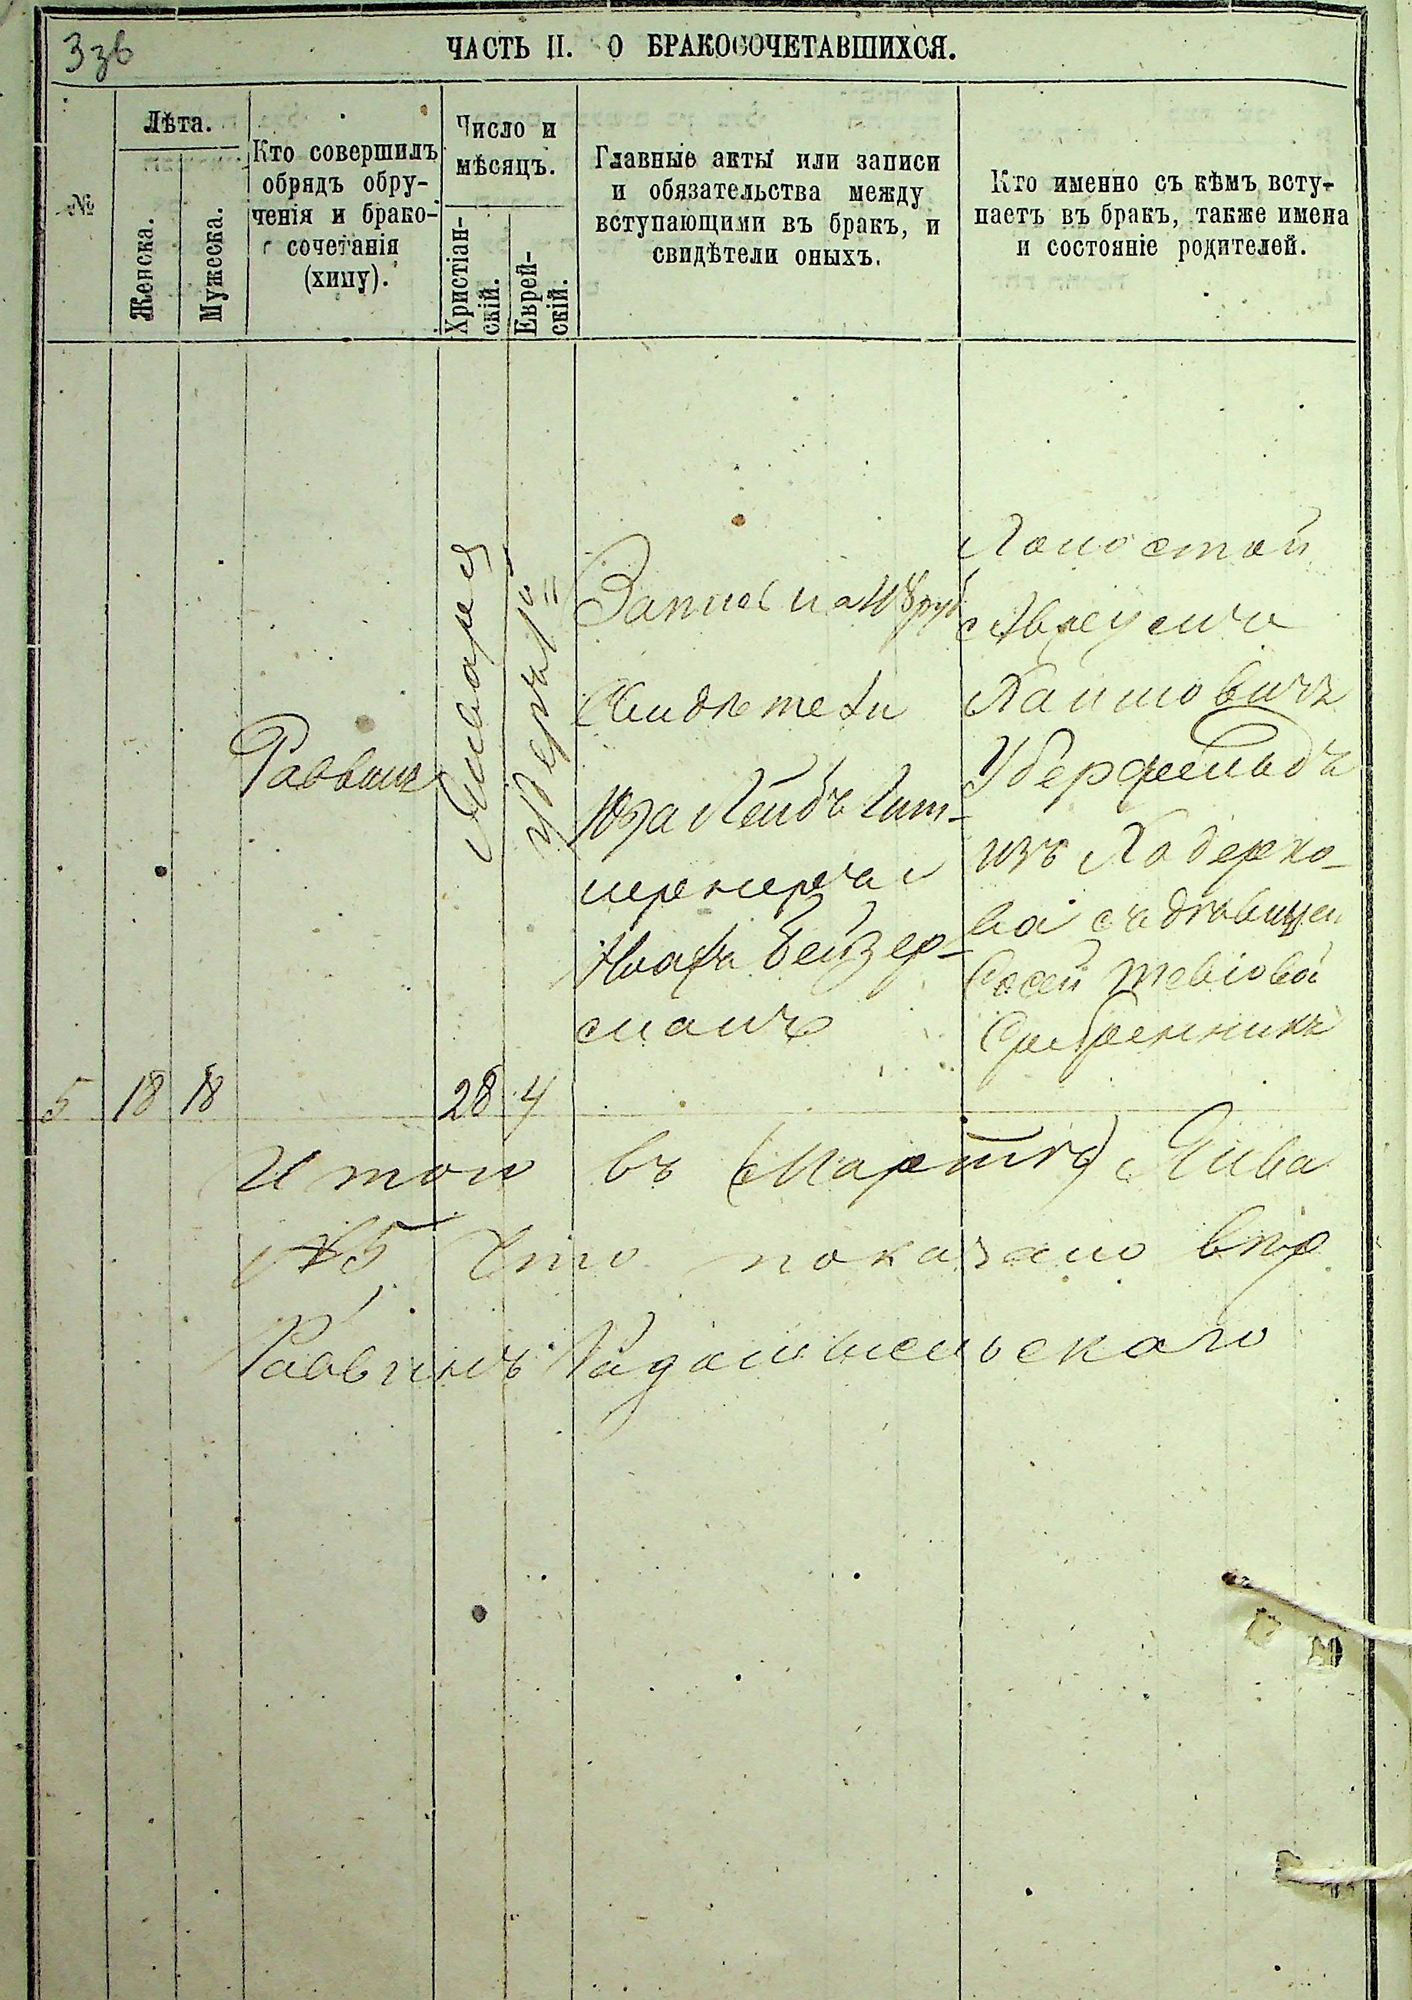 ЧАСТЬ II. О БРАКОСОЧЕТАВШИХСЯ.
№
Лѣта.
Женска.
Мужеска.
Кто совершилъ
обрядъ обру-
ченія и брако-
сочетанія
(хипу).
Число и
мѣсяцъ.
Христіан-
скій.
Еврей-
скій.
Главные акты или записи
и обязательства между
вступающими въ бракъ, и
свидѣтели оныхъ.
Кто именно съ кѣмъ всту-
паетъ въ бракъ, также имена
и состояніе родителей.
5
18
18
Раввинъ
Января
28
4
Запись на
Свидѣтели
Лейбъ
и
Бейзер-
манъ
Холостой
Хаимовичъ
Уберфельдъ
изъ Ходорко-
ва съ дѣвицей
Сосей
Сребренникъ
Итого въ (Мартѣ) Янва
№ 5 Что показано впр
Раввинъ Радомысльскаго